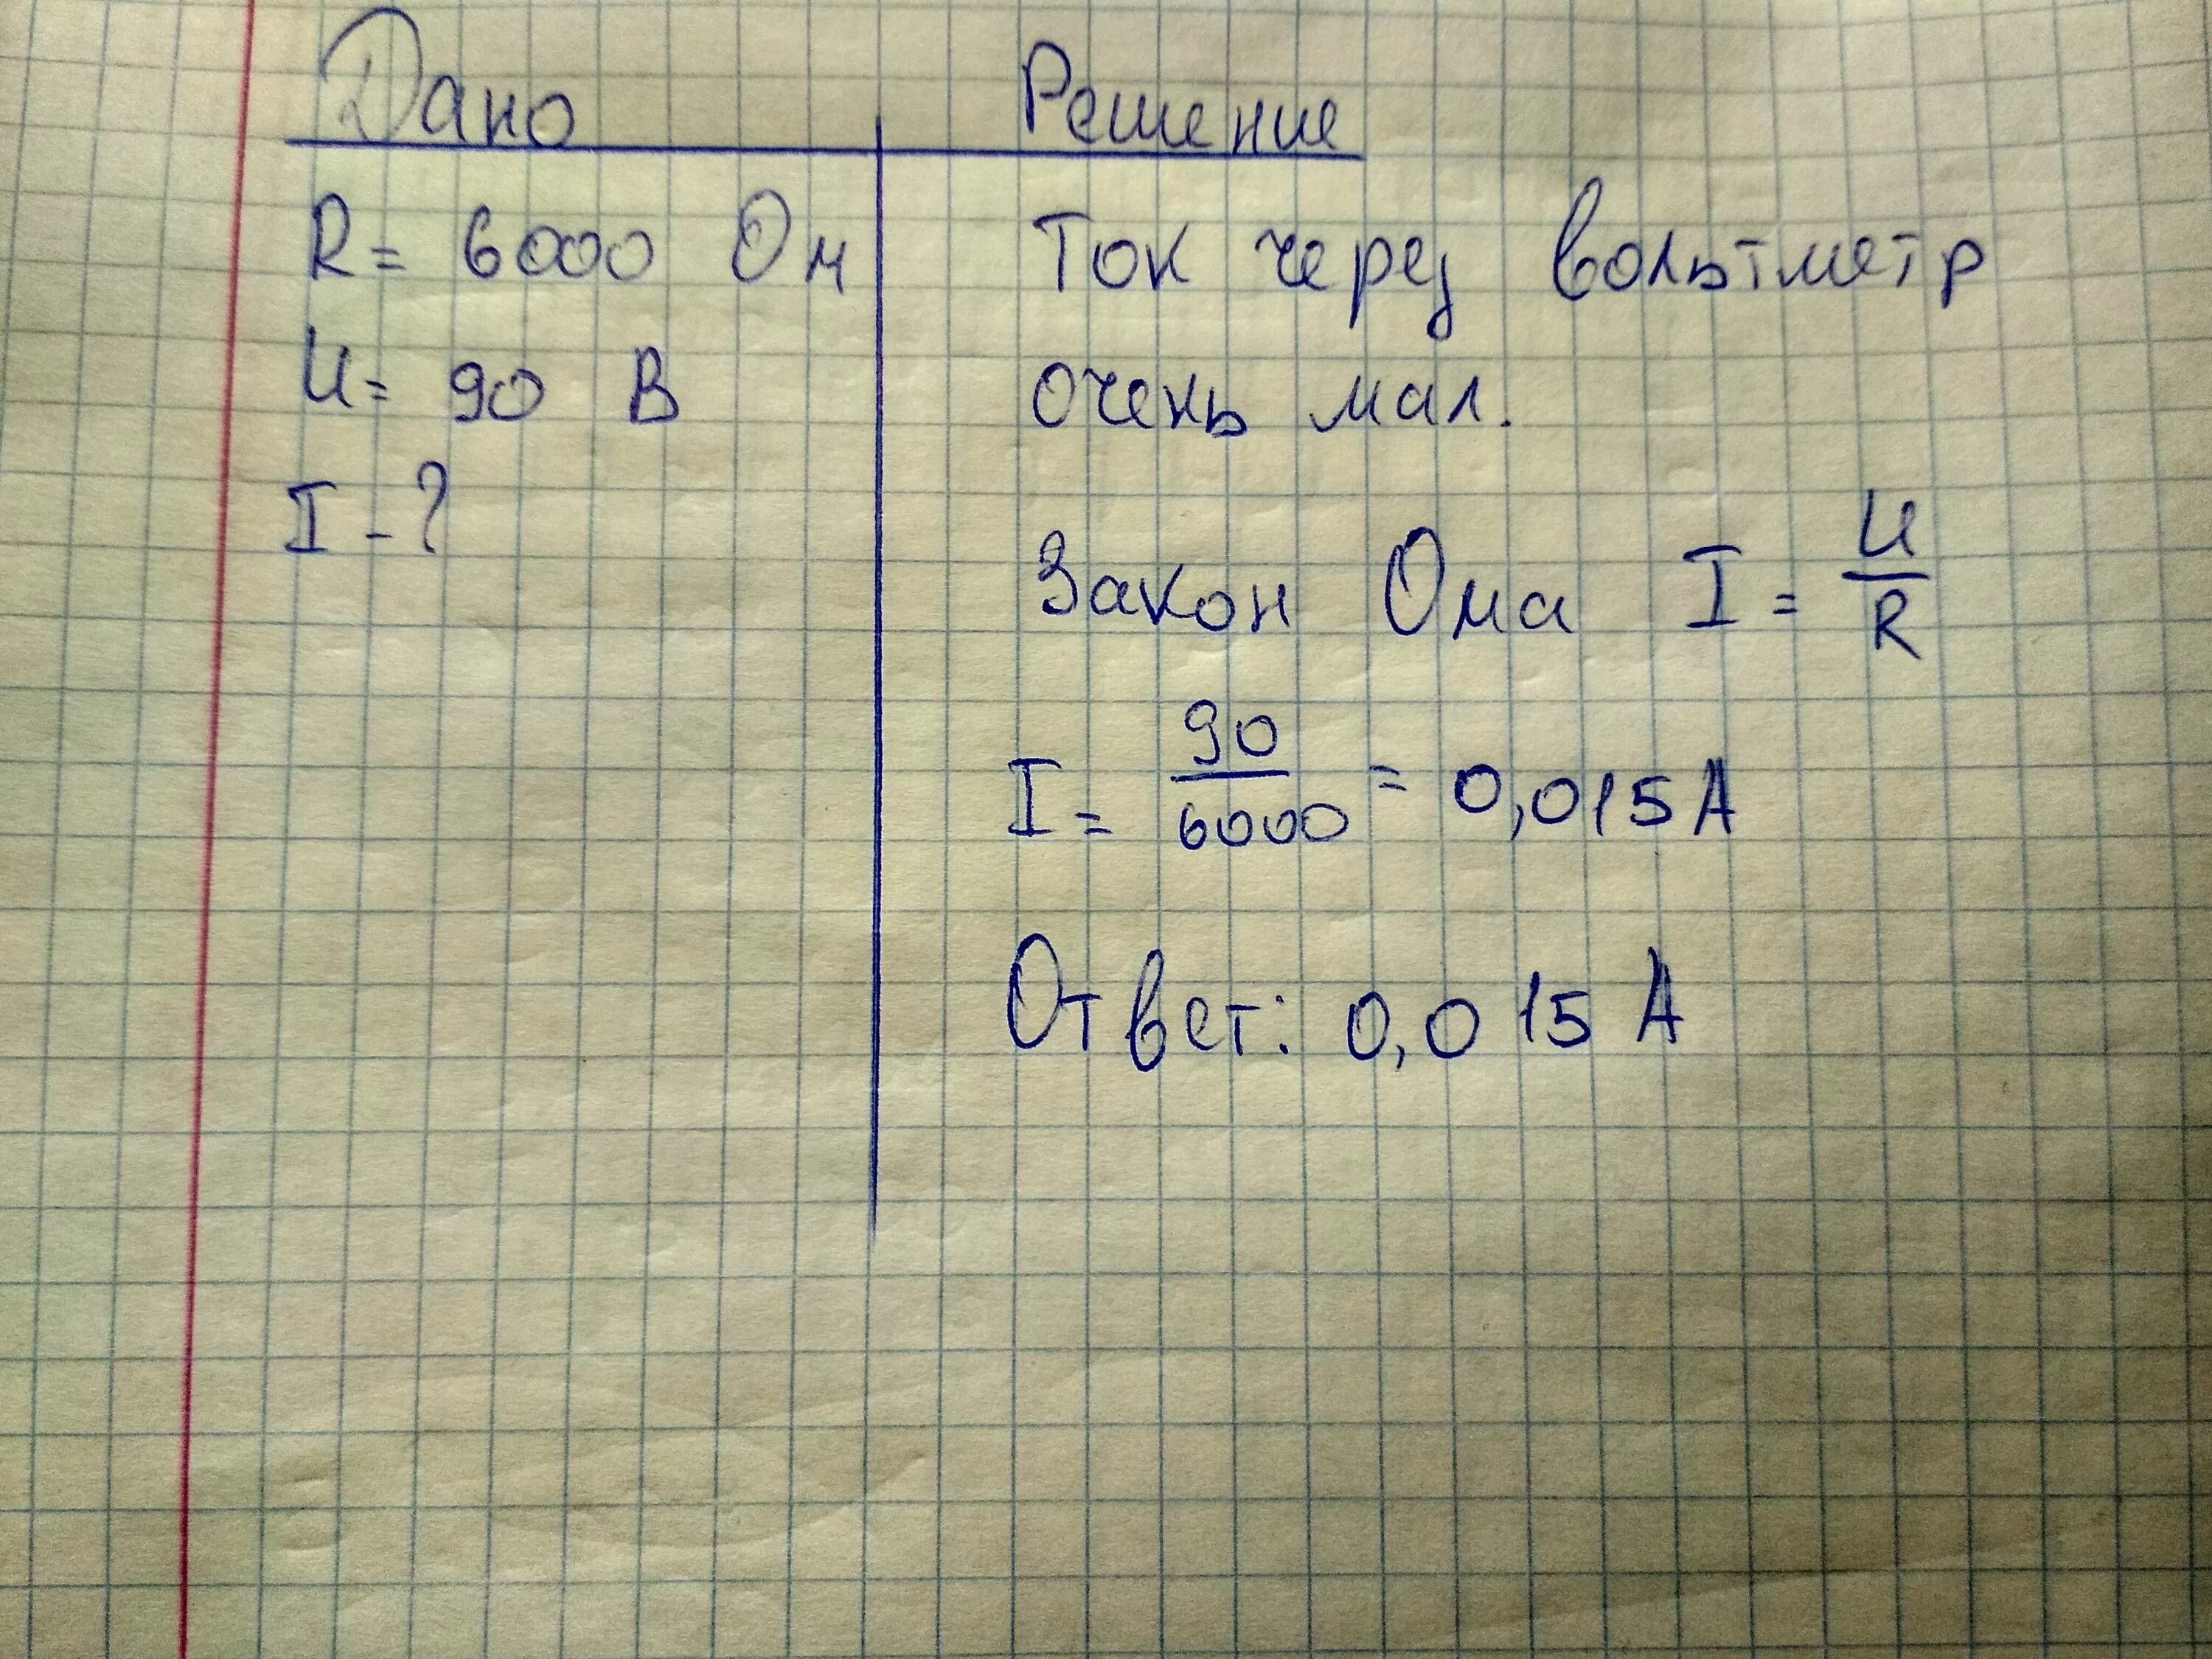 Дано
R = 6000 Ом
U = 90 В
I - ?
Решение
Ток через вольтметр
очень мал.
Закон Ома I = U/R
I = 90/6000 = 0,015 А
Ответ: 0,015 А